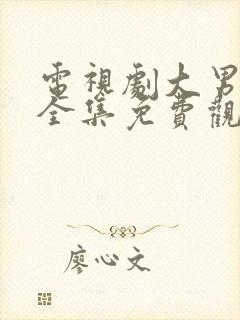 電視劇大男
全集免費觀
廖心文